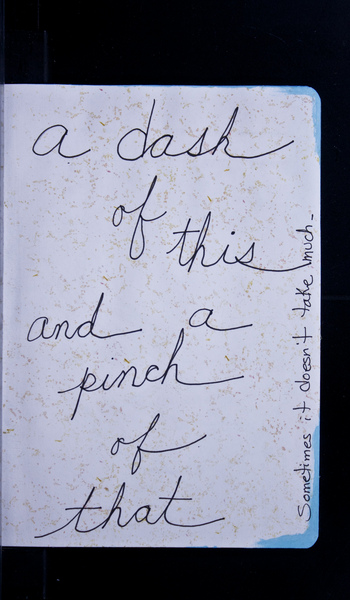 a dash
of
this
and a
pinch
of
that
Sometimes it doesn't take much-